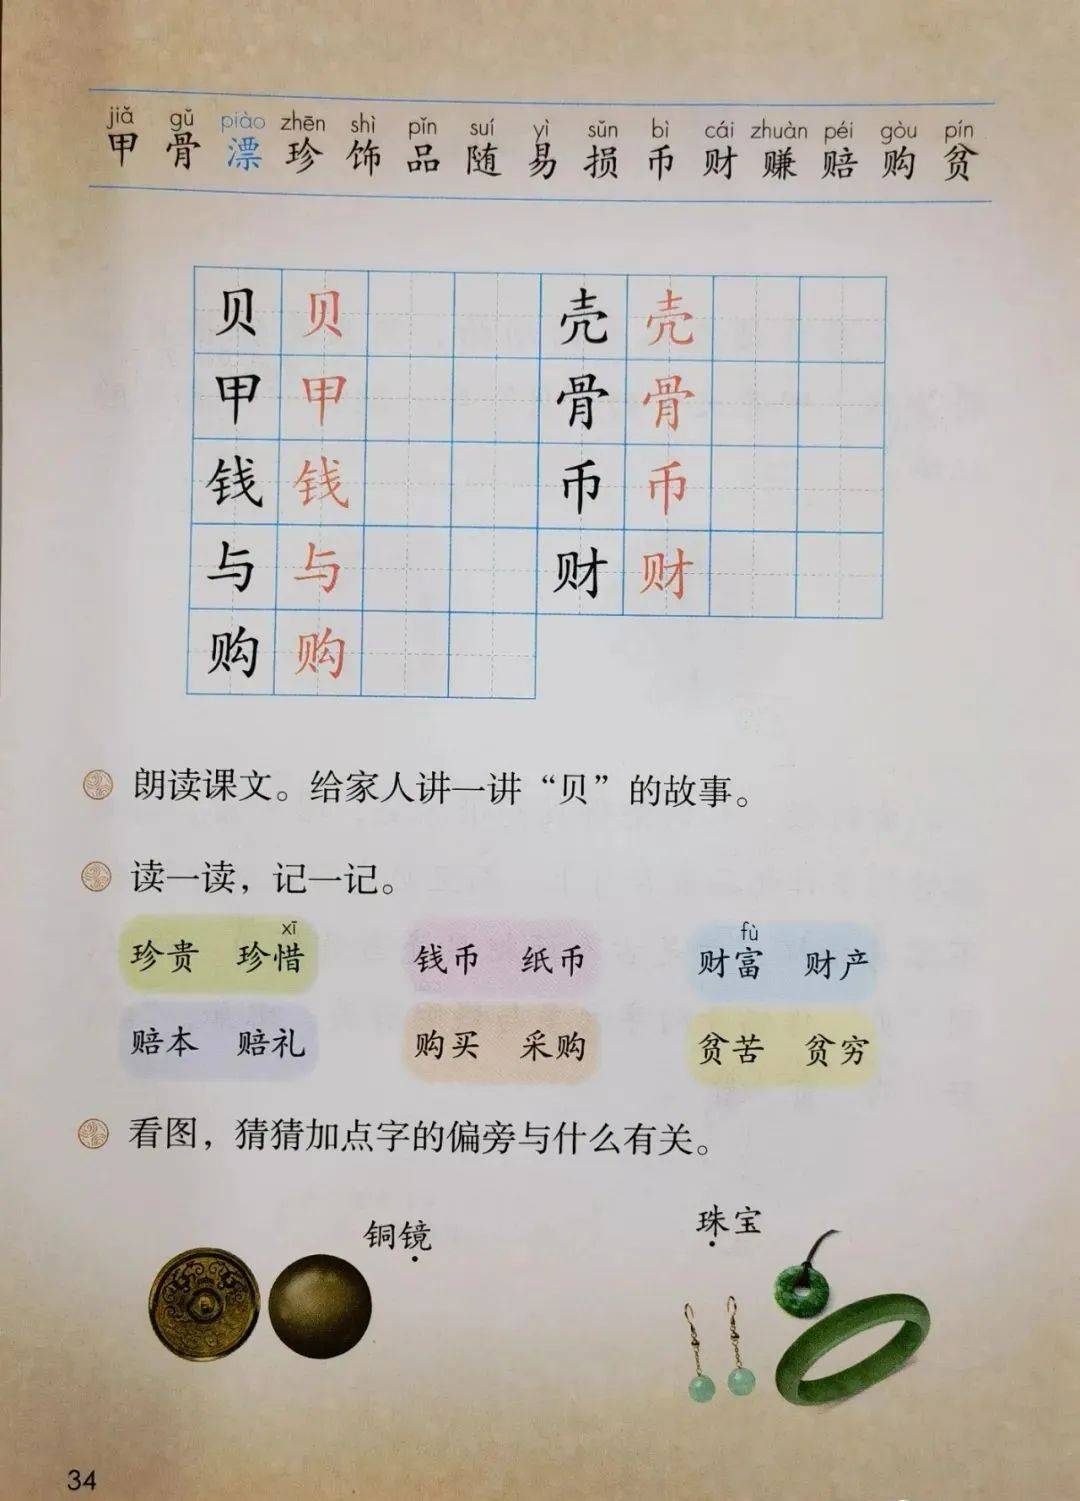 jiǎ gǔ piào zhēn shì pǐn suí yì sǔn bì cái zhuàn péi gòu pín
甲 骨 漂 珍 饰 品 随 易 损 币 财 赚 赔 购 贫
贝 贝 壳 壳
甲 甲 骨 骨
钱 钱 币 币
与 与 财 财
购 购
朗读课文。给家人讲一讲“贝”的故事。
读一读，记一记。
xī fù
珍贵 珍惜 钱币 纸币 财富 财产
赔本 赔礼 购买 采购 贫苦 贫穷
看图，猜猜加点字的偏旁与什么有关。
铜镜 珠宝
34